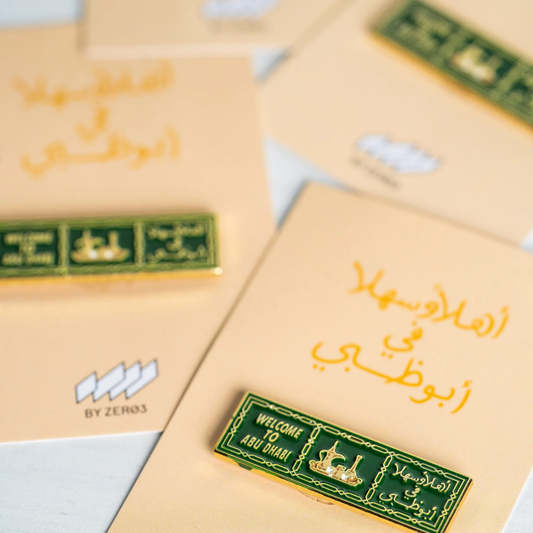 أهلاً وسهلا
في
أبوظبي
WELCOME
TO
ABU DHABI
أهلاً وسهلا
في
أبوظبي
أهلاً وسهلا
في
أبوظبي
WELCOME
TO
ABU DHABI
أهلاً وسهلا
في
أبوظبي
BY ZER03
BY ZER03